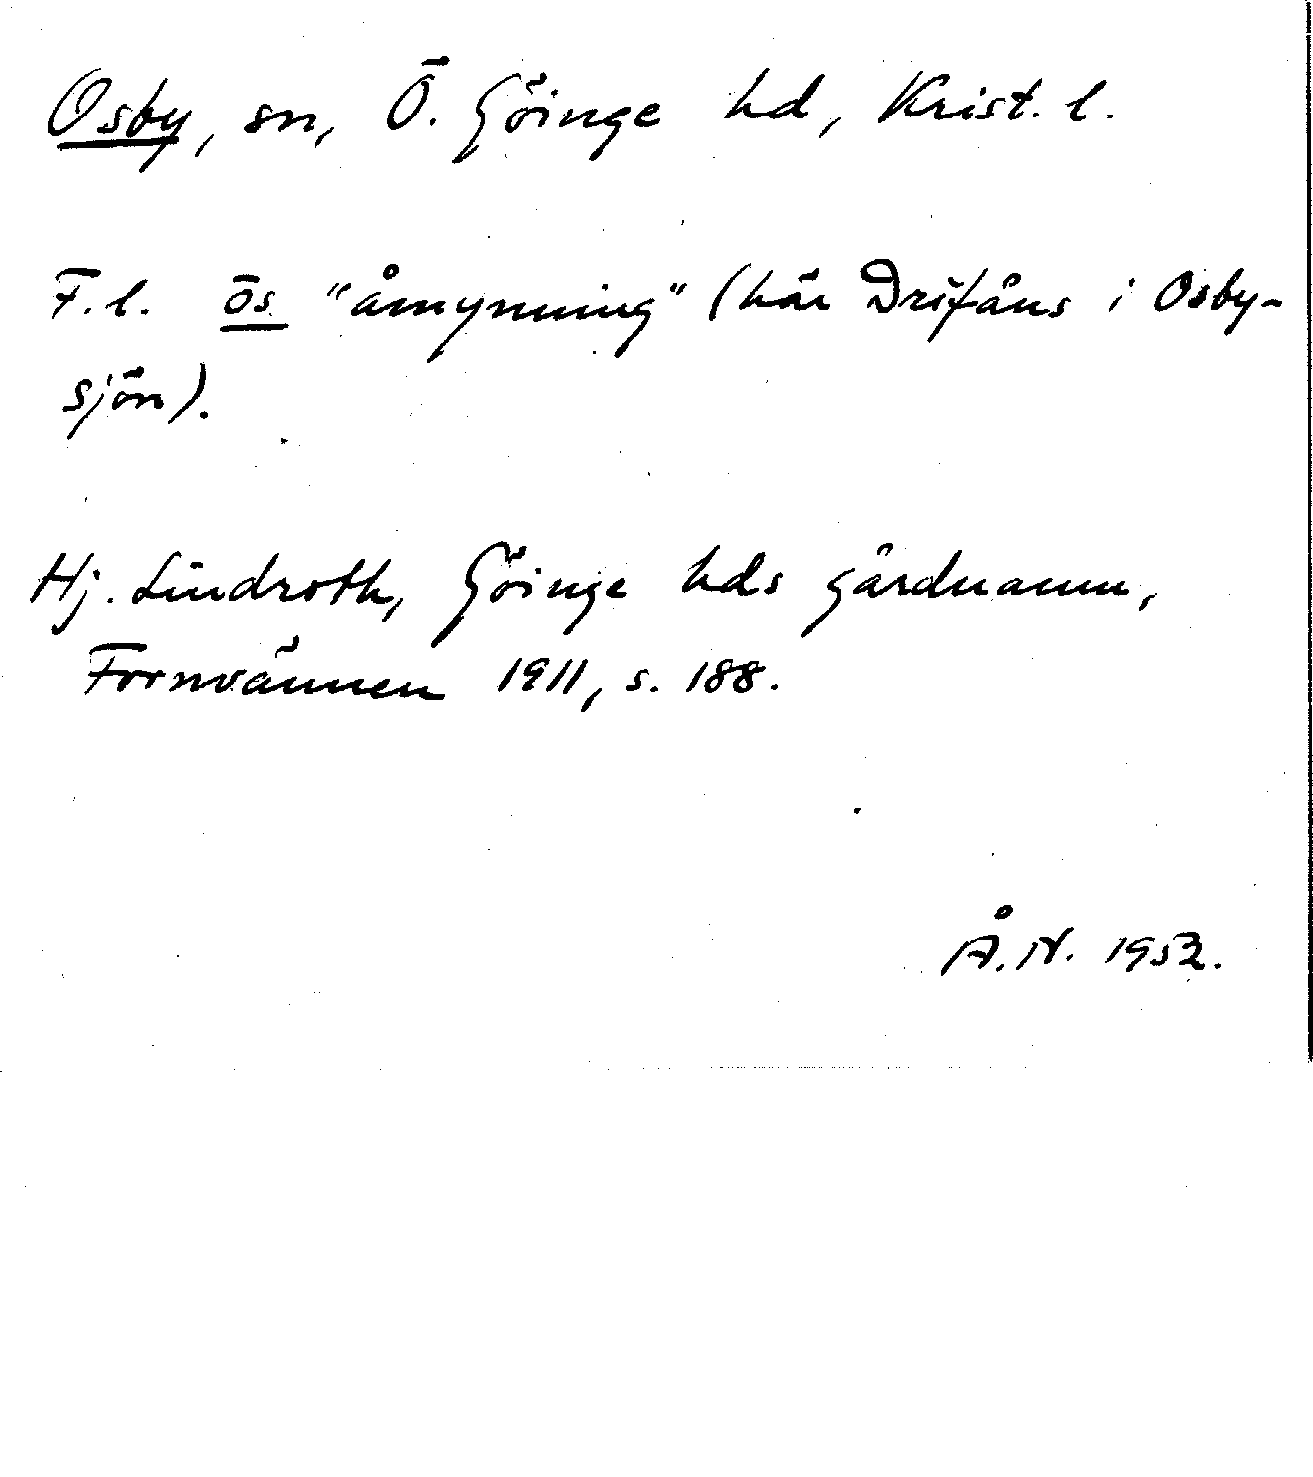 Osby, sn, Ö. Göinge hd, Krist. l.
F.l. ōs "åmynning" (här Drifåns i Osby-
sjön).
Hj. Lindroth, Göinge hds gårdnamn,
Fornvännen 1911, s. 188.
Å.N. 1952.